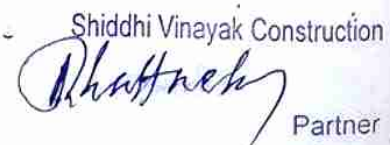 Shiddhi Vinayak Construction
Partner